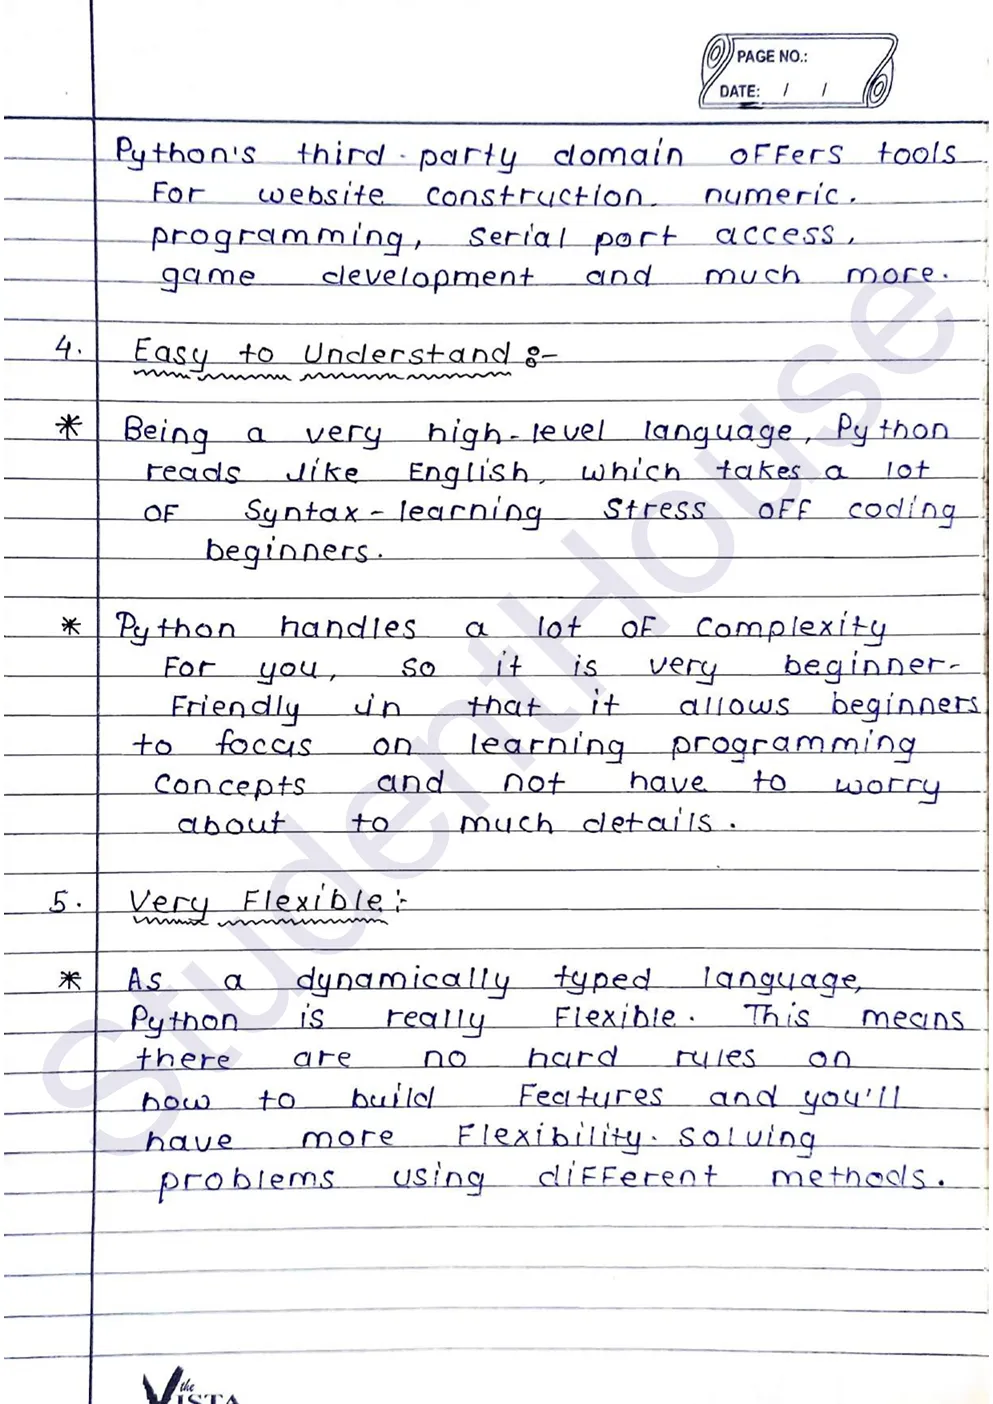 PAGE NO.:
DATE: / /
Python's third-party domain offers tools
for website construction. numeric.
programming, serial port access,
game development and much more.
4. Easy to Understand :-
* Being a very high-level language, Python
reads like English, which takes a lot
of Syntax-learning stress off coding
beginners.
* Python handles a lot of complexity
for you, so it is very beginner-
friendly in that it allows beginners
to focus on learning programming
concepts and not have to worry
about to much details.
5. Very Flexible :-
* As a dynamically typed language,
Python is really flexible. This means
there are no hard rules on
how to build features and you'll
have more flexibility. solving
problems using different methods.
StudentHouse
the
VISTA